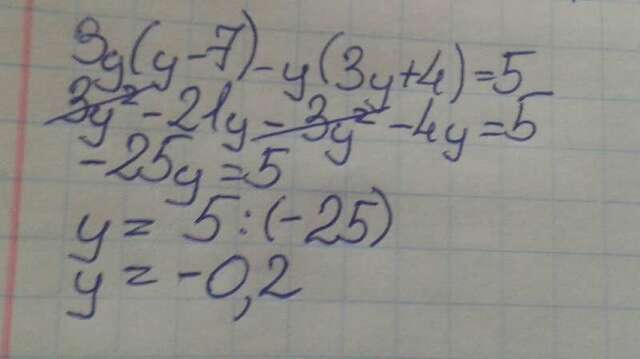 3y(y-7)-y(3y+4)=5
3y²-21y-3y²-4y=5
-25y=5
y= 5:(-25)
y=-0,2